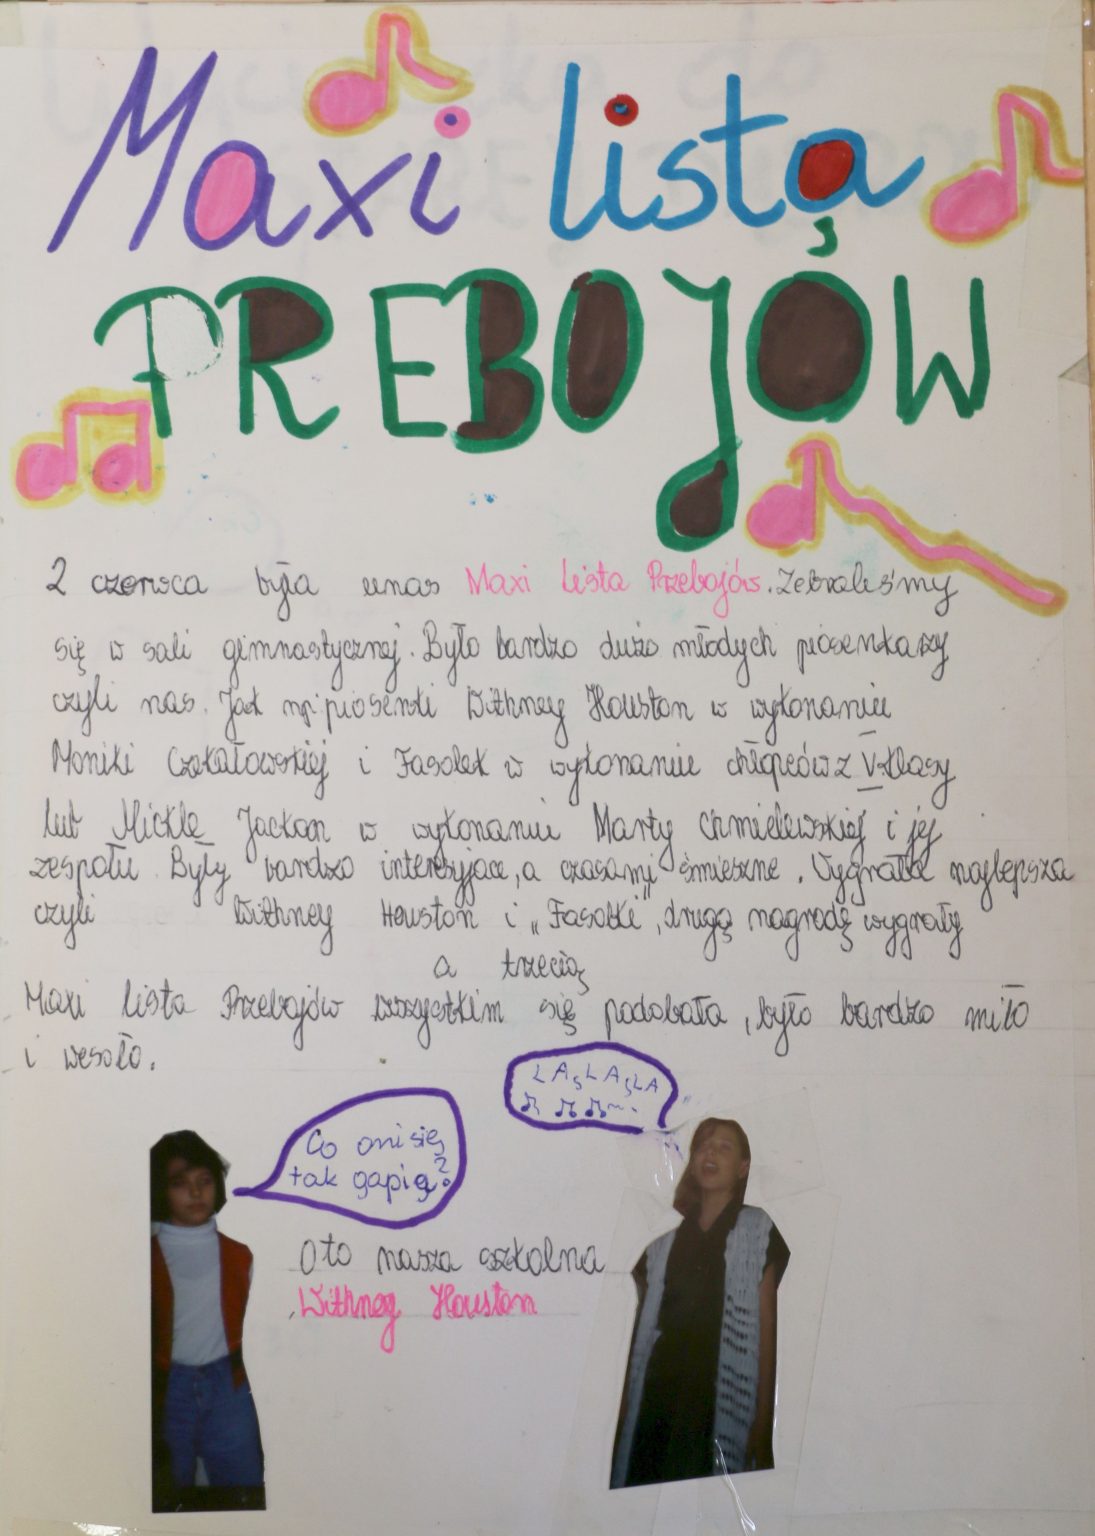 Maxi lista
PREBOJÓW
2 czerwca była unas Maxi lista Przebojów. Zebraliśmy
się w sali gimnastycznej. Było bardzo dużo młodych piosenkarzy
czyli nas. Jak np. piosenki Withney Houston w wykonaniu
Moniki Czekałowskiej i Fasolek w wykonaniu chłopców z V klasy
lub Mickle Jackson w wykonaniu Marty Chmielewskiej i jej
zespołu. Były bardzo interesyjace, a czasami śmieszne. Wygrała najlepsza
czyli Withney Houston i „Fasolki", drugą nagrodę wygrały
a trzecią
Maxi lista Przebojów wszystkim się podobała, było bardzo miło
i wesoło.
LA, LA, LA
Co oni się
tak gapią?
Oto nasza szkolna
Withney Houston